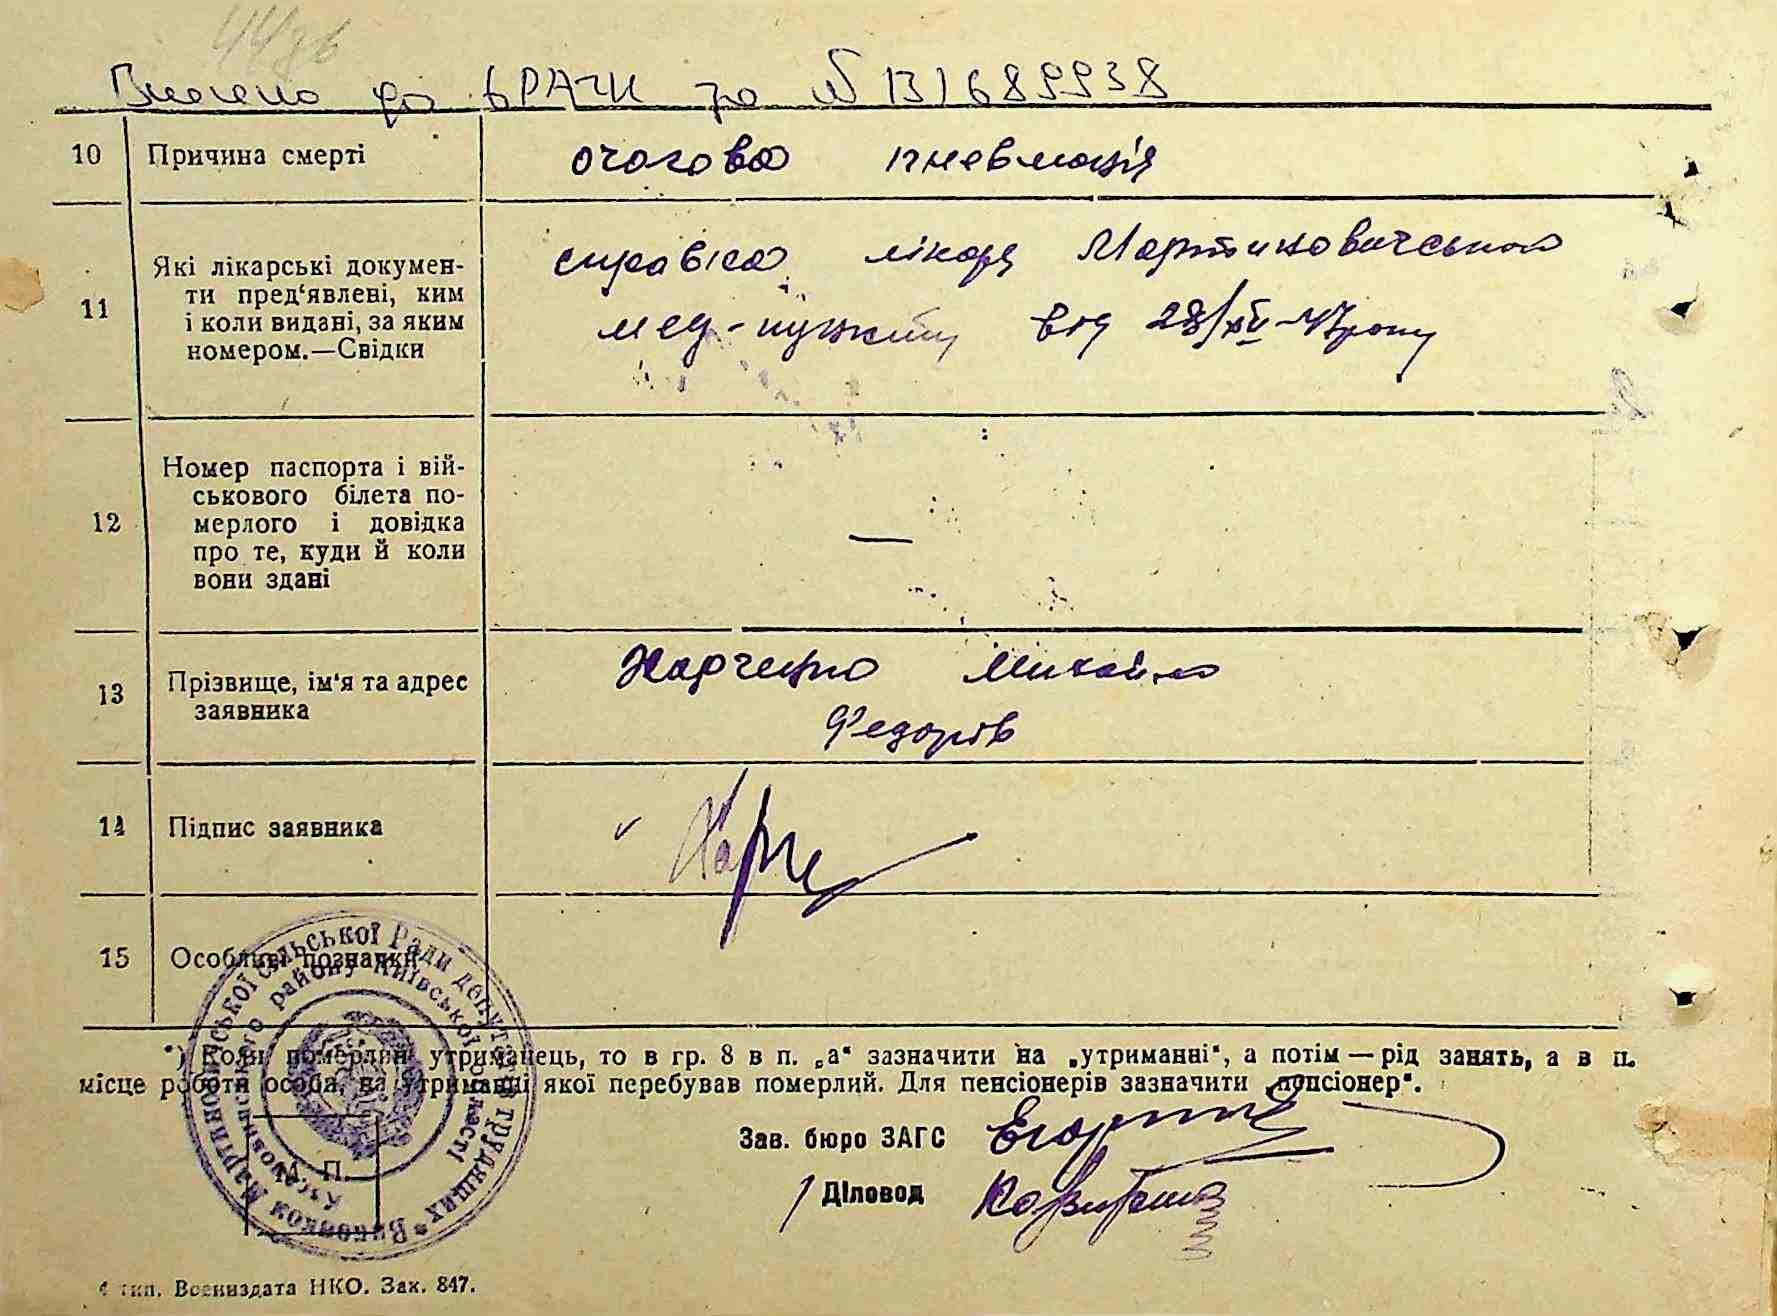 Внесено до ДРАЦС за № 131689938
10 Причина смерті очагова пневмація
11 Які лікарські докумен-
ти пред'явлені, ким
і коли видані, за яким
номером.—Свідки
справка лікаря Мартиновичського
мед-пункту від 28/XII-47 року
12 Номер паспорта і вій-
ськового білета по-
мерлого і довідка
про те, куди й коли
вони здані
—
13 Прізвище, ім'я та адрес
заявника
Харченко Михайло
Федорів
14 Підпис заявника
15 Особливі позначки
Виконком Мартиновицської сільської Ради депутатів трудящих
району Київської області
*) Коли померлий утриманець, то в гр. 8 в п. „а“ зазначити на „утриманні“, а потім — рід занять, а в п.
місце роботи особи, на утриманні якої перебував померлий. Для пенсіонерів зазначити „пенсіонер“.
Зав. бюро ЗАГС
Діловод
М. П.
4 тип. Воениздата НКО. Зак. 847.